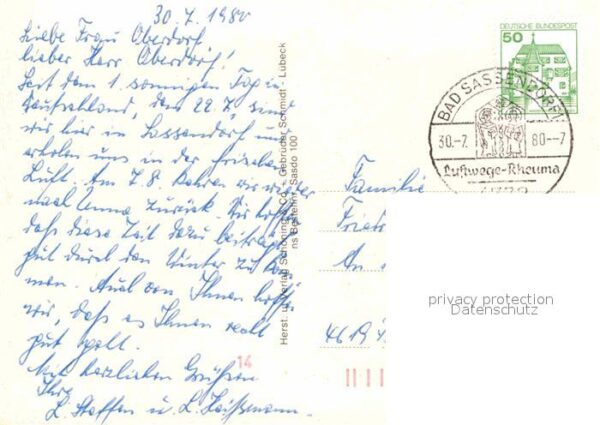 30.7.1980
Liebe Frau Oberdorf,
lieber Herr Oberdorf!
Seit dem 1. sonnigen Tag in
Deutschland, dem 22.7. sind
wir hier in Sassendorf und
erholen uns in der frischen
Luft. Am 7.8. fahren wir wieder
nach Unna zurück. Wir hoffen
daß diese Zeit dazu beiträgt
gut durch den Winter zu kom-
men. Auch von Ihnen hoffen
wir, daß es Ihnen recht
gut geht.
Mit herzlichen Grüßen
Ihre
L. Steffen u. L.
Herst. u. Verlag Schöning & Co. + Gebrüder Schmidt · Lübeck
Bestellnr. Sasdo 100
DEUTSCHE BUNDESPOST
50
BAD SASSENDORF 1
30.-7. 80--7
Luftwege-Rheuma
Familie
An
4619
14
privacy protection
Datenschutz